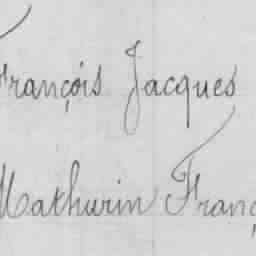 François Jacques
Mathurin Franç